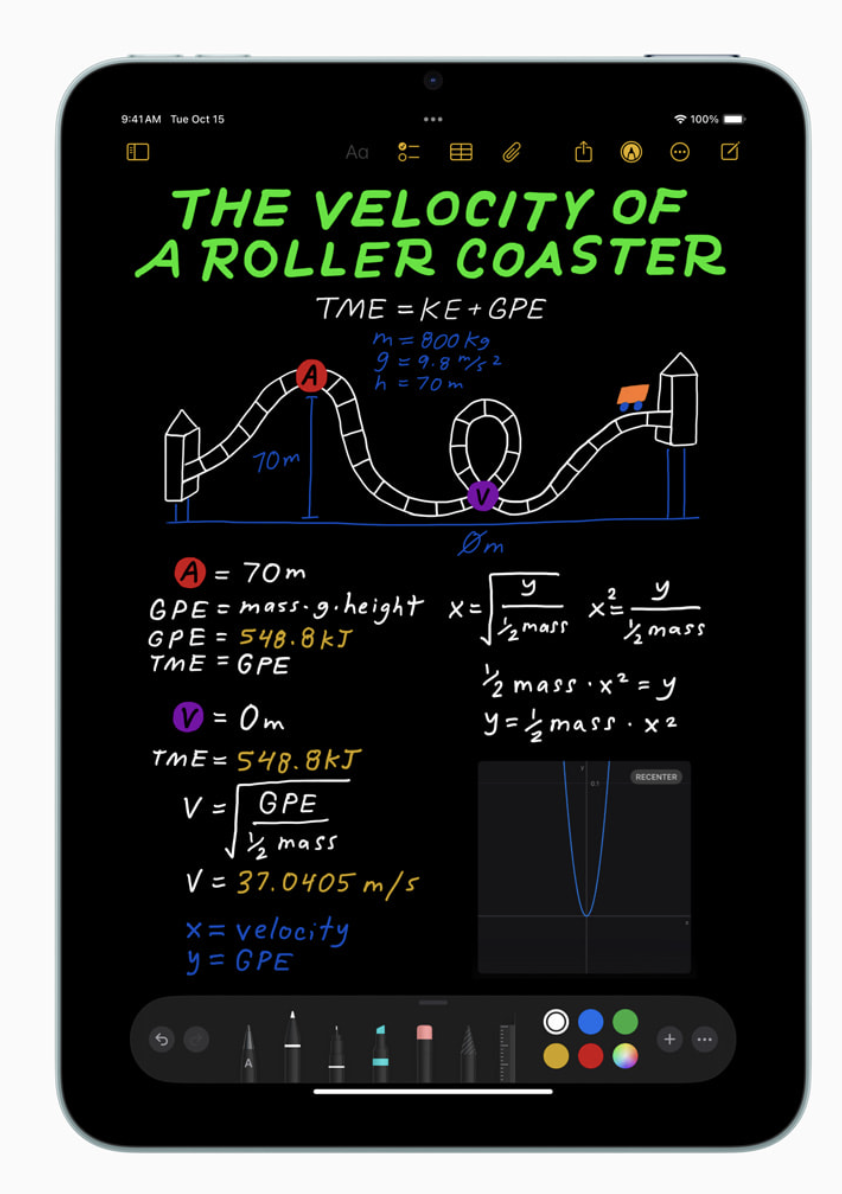 9:41 AM Tue Oct 15 100%
Aa
THE VELOCITY OF
A ROLLER COASTER
TME = KE + GPE
m = 800 kg
g = 9.8 m/s²
h = 70 m
A
70m
V
Øm
A = 70m
GPE = mass · g · height
GPE = 548.8 kJ
TME = GPE
V = 0m
TME = 548.8 kJ
V = √(GPE / ½ mass)
V = 37.0405 m/s
x = velocity
y = GPE
x = √(y / ½ mass) x² = y / ½ mass
½ mass · x² = y
y = ½ mass · x²
y
0.1
RECENTER
x
A